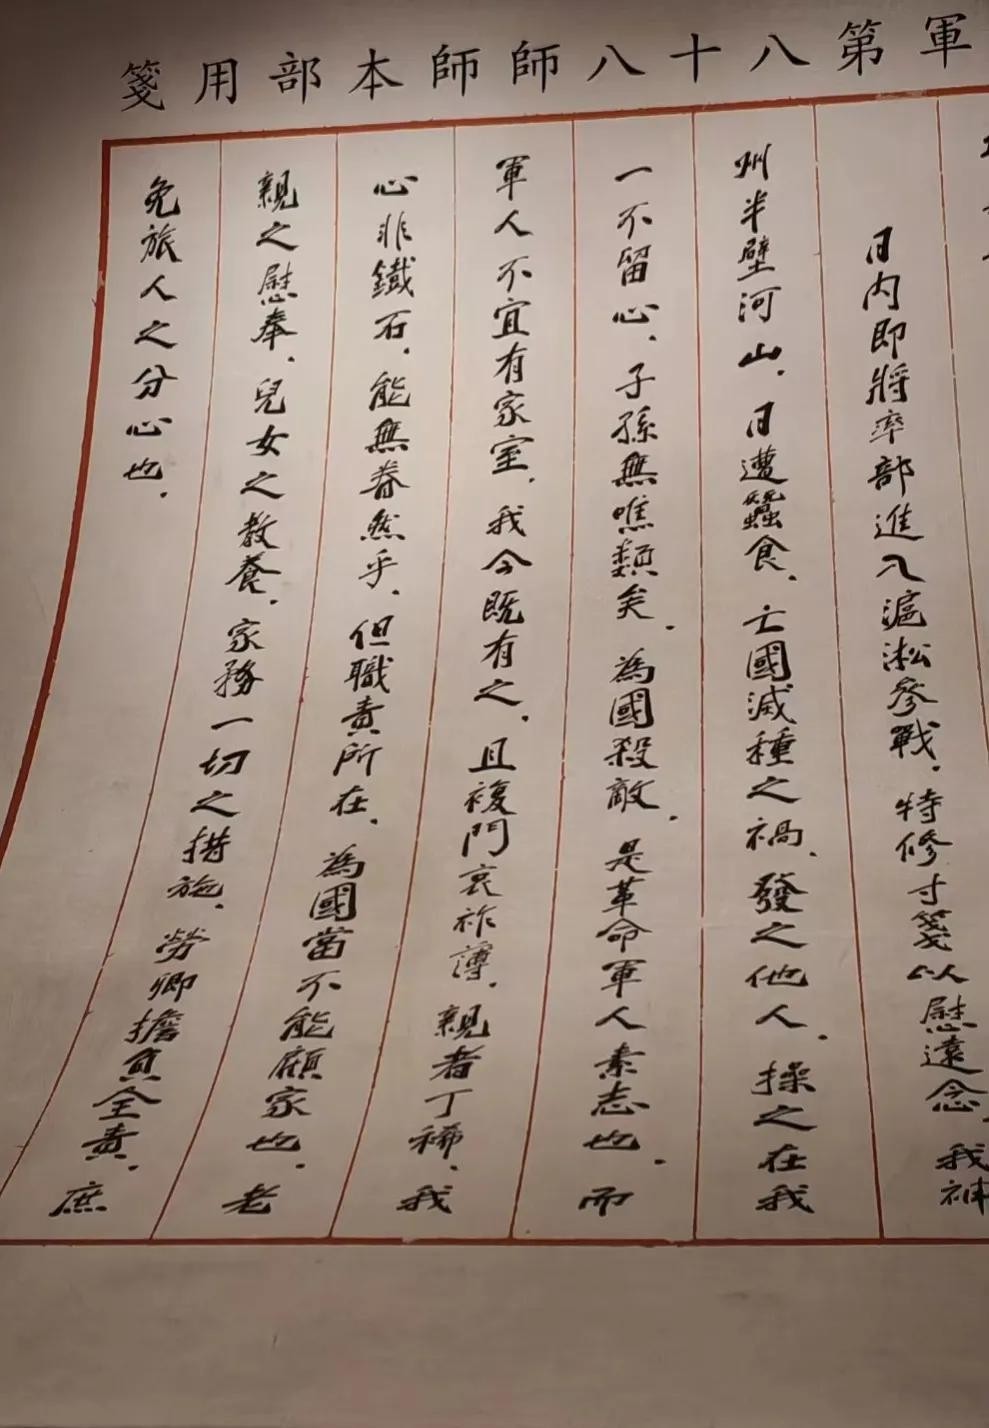 軍第八十八師師本部用箋
日内即將率部進入滬淞參戰．特修寸箋以慰遠念．我神
州半壁河山．日遭蠶食．亡國滅種之禍．發之他人．操之在我
一不留心．子孫無噍類矣．為國殺敵．是革命軍人素志也．而
軍人不宜有家室．我今既有之．且複門哀祚薄．親者丁稀．我
心非鐵石．能無眷然乎．但職責所在．為國當不能顧家也．老
親之慰奉．兒女之教養．家務一切之措施．勞卿擔負全責．庶
免旅人之分心也．